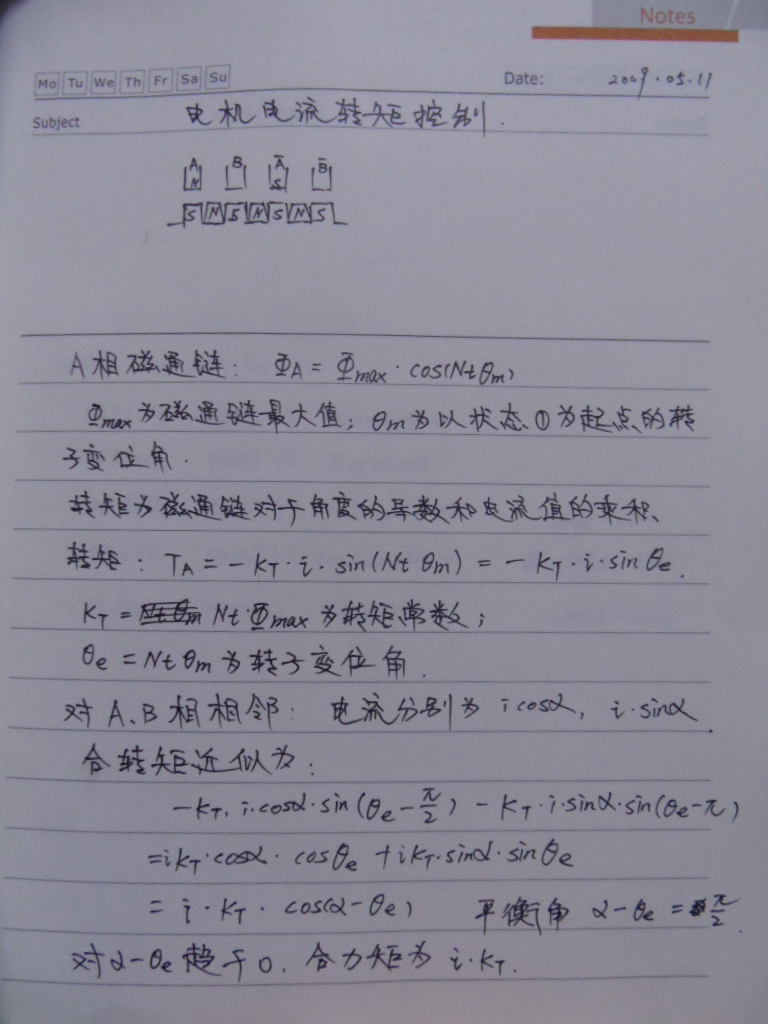 Notes
Mo Tu We Th Fr Sa Su
Date: 2009.05.11
Subject 电机电流转矩控制.
A B Ā B̄
N S
S N S N S N S
A相磁通链: Φ_A = Φ_max · cos(Nt θm)
Φ_max 为磁通链最大值; θm为以状态①为起点的转
子变位角.
转矩为磁通链对于角度的导数和电流值的乘积、
转矩: T_A = -K_T · i · sin(Nt θm) = -K_T · i · sin θe.
K_T = Nt · Φ_max 为转矩常数;
θe = Nt θm 为转子变位角.
对A、B相相邻: 电流分别为 i cosα, i·sinα.
合转矩近似为:
-K_T · i·cosα·sin(θe - π/2) - K_T · i·sinα·sin(θe-π)
= i K_T · cosα · cosθe + i K_T · sinα · sinθe
= i · K_T · cos(α-θe) 平衡角 α-θe = π/2.
对α-θe 趋于0. 合力矩为 i·K_T.